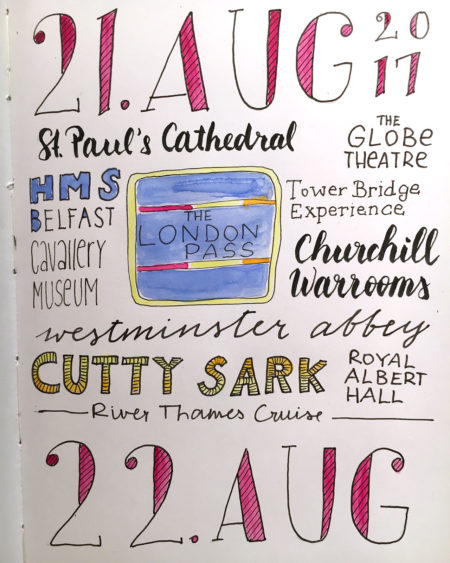 21. AUG 2017
St. Paul's Cathedral
THE
GLOBE
THEATRE
HMS
BELFAST
Cavallery
MUSEUM
THE
LONDON
PASS
Tower Bridge
Experience
Churchill
Warrooms
westminster abbey
CUTTY SARK
ROYAL
ALBERT
HALL
River Thames Cruise
22. AUG